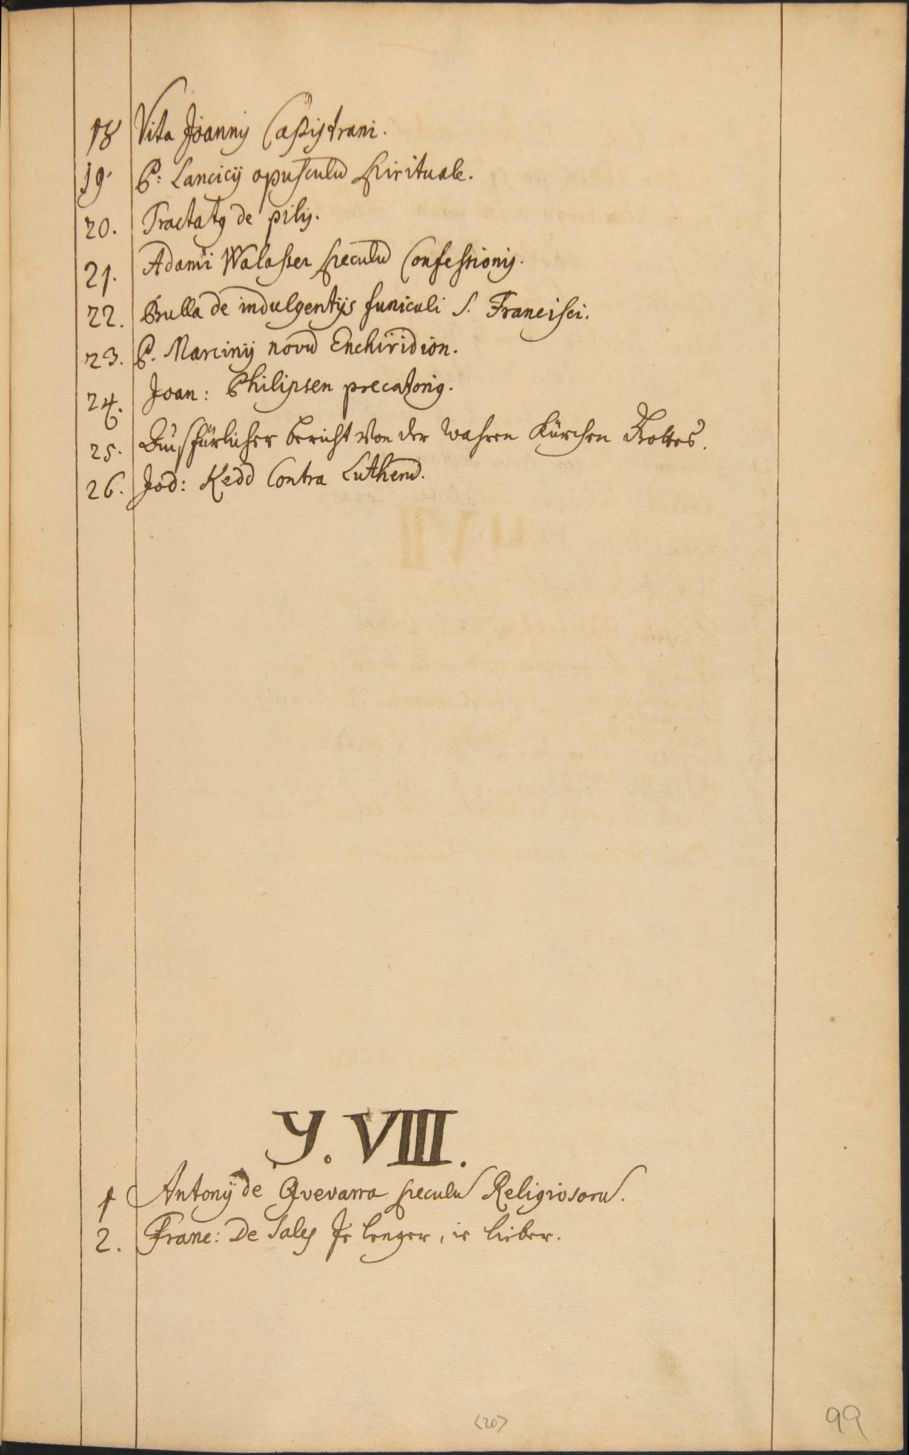 18 Vita Joannis Capistrani.
19. P: Lancicij opusculū spirituale.
20. Tractatq de pilis.
21. Adami Walasser speculū Confessionis.
22. Bulla de indulgentijs funiculi S. Francisci.
23. P. Marcinij novū Enchiridion.
24. Joan: Philipsen precatoriq.
25. Außfürlicher bericht von der wahren Kürchen Gottes.
26. Jod: Kedd Contra Lutherū.
Y. VIII.
1 Antonij de Gvevarra speculū Religiosorū.
2. Franc: De Sales Je lenger, ie lieber.
(20)
99